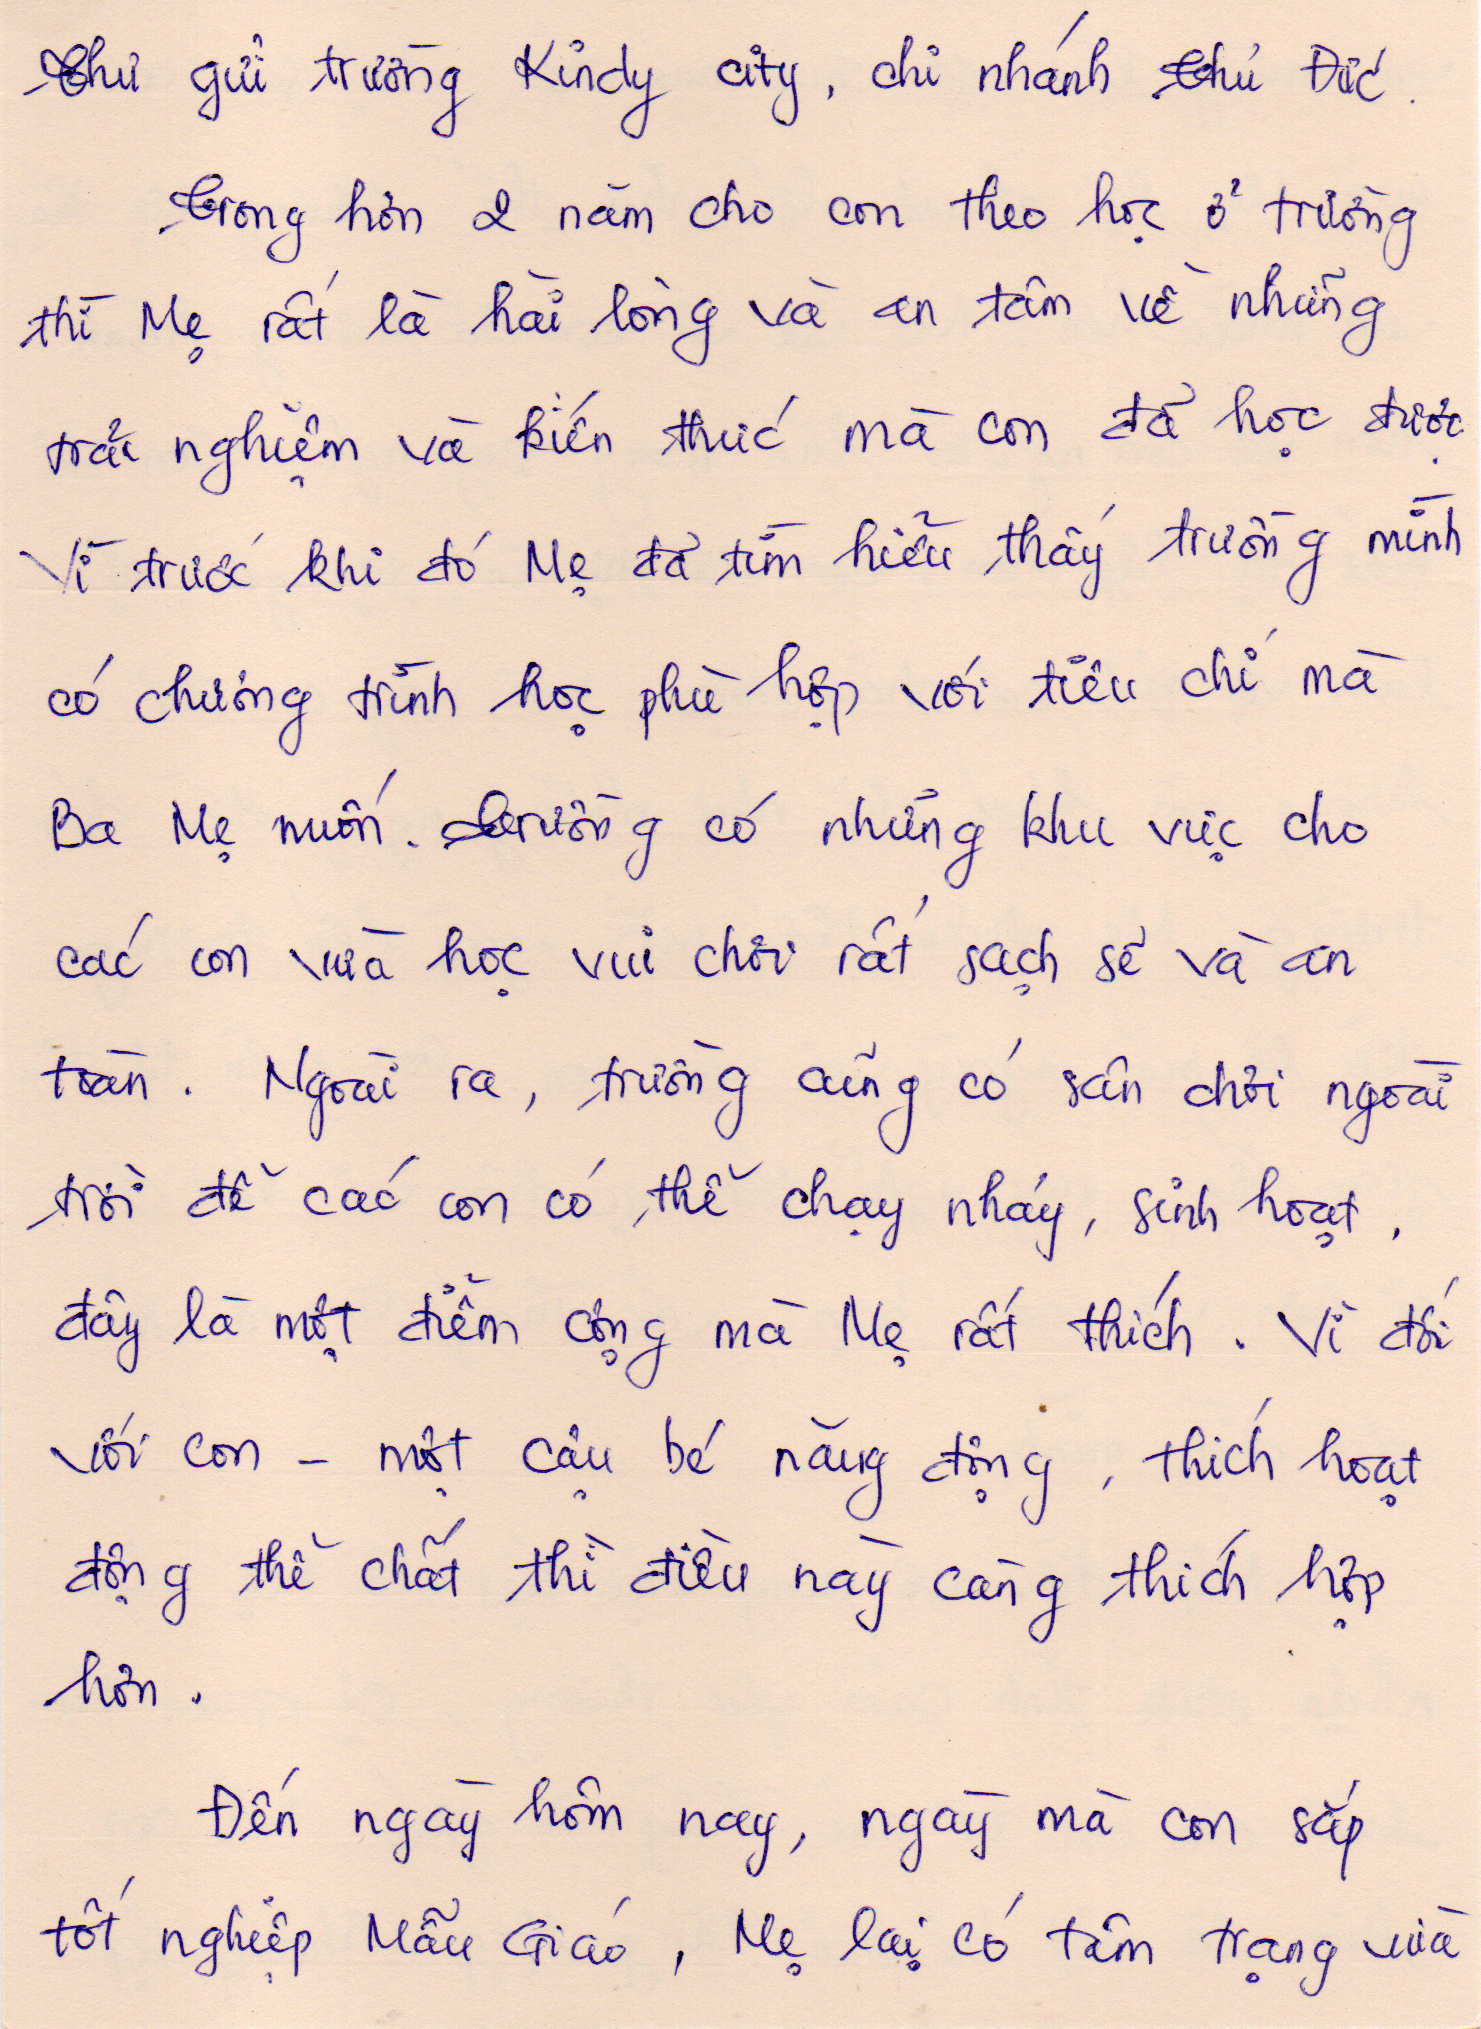 Thư gửi trường Kindy city, chi nhánh Thủ Đức.
Trong hơn 2 năm cho con theo học ở trường
thì Mẹ rất là hài lòng và an tâm về những
trải nghiệm và kiến thức mà con đã học được.
Vì trước khi đó Mẹ đã tìm hiểu thấy trường mình
có chương trình học phù hợp với tiêu chí mà
Ba Mẹ muốn. Trường có những khu vực cho
các con vừa học vui chơi rất sạch sẽ và an
toàn. Ngoài ra, trường cũng có sân chơi ngoài
trời để các con có thể chạy nhảy, sinh hoạt,
đây là một điểm cộng mà Mẹ rất thích. Vì đối
với con - một cậu bé năng động, thích hoạt
động thể chất thì điều này càng thích hợp
hơn.
Đến ngày hôm nay, ngày mà con sắp
tốt nghiệp Mẫu Giáo, Mẹ lại có tâm trạng vừa